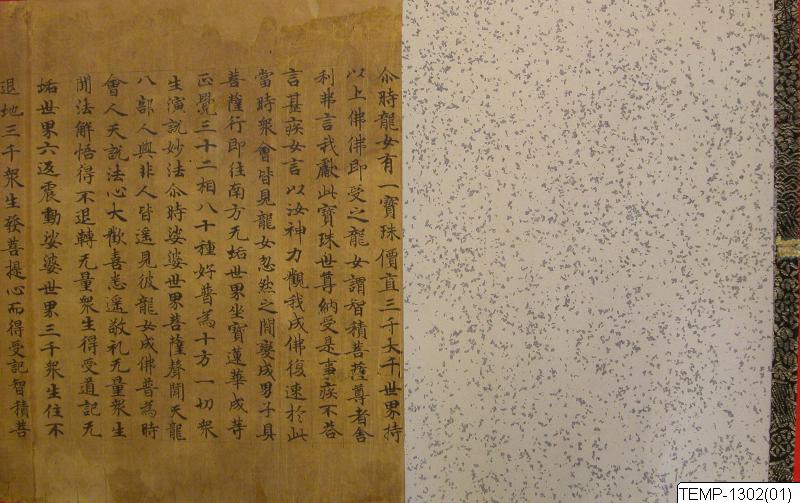 尒時龍女有一寶珠價直三千大千世界持
以上佛佛即受之龍女謂智積菩薩尊者舍
利弗言我獻此寶珠世尊納受是事疾不荅
言甚疾女言以汝神力觀我成佛復速於此
當時衆會皆見龍女忽然之閒變成男子具
菩薩行即往南方无垢世界坐寶蓮華成等
正覺三十二相八十種好普為十方一切衆
生演說妙法尒時娑婆世界菩薩聲聞天龍
八部人與非人皆遥見彼龍女成佛普為時
會人天說法心大歡喜悉遥敬礼无量衆生
聞法解悟得不退轉无量衆生得受道記无
垢世界六返震動娑婆世界三千衆生住不
退地三千衆生發菩提心而得受記智積菩
TEMP-1302(01)